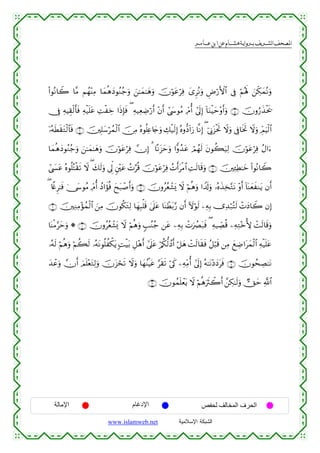 المصحف الشريف برواية هشام عن ابن عامر
وَنُمَكِّنَ لَهُمْ فِي الْأَرْضِ وَنُرِيَ فِرْعَوْنَ وَهَامَانَ وَجُنُودَهُمَا مِنْهُم مَّا كَانُوا
يَحْذَرُونَ ۞ وَأَوْحَيْنَا إِلَىٰ أُمِّ مُوسَىٰ أَنْ أَرْضِعِيهِ فَإِذَا خِفْتِ عَلَيْهِ فَأَلْقِيهِ فِي
الْيَمِّ وَلَا تَخَافِي وَلَا تَحْزَنِي إِنَّا رَادُّوهُ إِلَيْكِ وَجَاعِلُوهُ مِنَ الْمُرْسَلِينَ ۞ فَالْتَقَطَهُ
آلُ فِرْعَوْنَ لِيَكُونَ لَهُمْ عَدُوًّا وَحَزَنًا إِنَّ فِرْعَوْنَ وَهَامَانَ وَجُنُودَهُمَا
كَانُوا خَاطِئِينَ ۞ وَقَالَتِ امْرَأَتُ فِرْعَوْنَ قُرَّتُ عَيْنٍ لِّي وَلَكَ لَا تَقْتُلُوهُ عَسَىٰ
أَن يَنفَعَنَا أَوْ نَتَّخِذَهُ وَلَدًا وَهُمْ لَا يَشْعُرُونَ ۞ وَأَصْبَحَ فُؤَادُ أُمِّ مُوسَىٰ فَارِغًا
إِن كَادَتْ لَتُبْدِي بِهِ لَوْلَا أَن رَّبَطْنَا عَلَىٰ قَلْبِهَا لِتَكُونَ مِنَ الْمُؤْمِنِينَ ۞
وَقَالَتْ لِأُخْتِهِ قُصِّيهِ فَبَصُرَتْ بِهِ عَن جُنُبٍ وَهُمْ لَا يَشْعُرُونَ ۞ وَحَرَّمْنَا
عَلَيْهِ الْمَرَاضِعَ مِن قَبْلُ فَقَالَتْ هَلْ أَدُلُّكُمْ عَلَىٰ أَهْلِ بَيْتٍ يَكْفُلُونَهُ لَكُمْ وَهُمْ لَهُ
نَاصِحُونَ ۞ فَرَدَدْنَاهُ إِلَىٰ أُمِّهِ كَيْ تَقَرَّ عَيْنُهَا وَلَا تَحْزَنَ وَلِتَعْلَمَ أَنَّ وَعْدَ
اللَّهِ حَقٌّ وَلَٰكِنَّ أَكْثَرَهُمْ لَا يَعْلَمُونَ ۞
الحرف المخالف لحفص الإدغام الإمالة
www.islamweb.net الشبكة الإسلامية